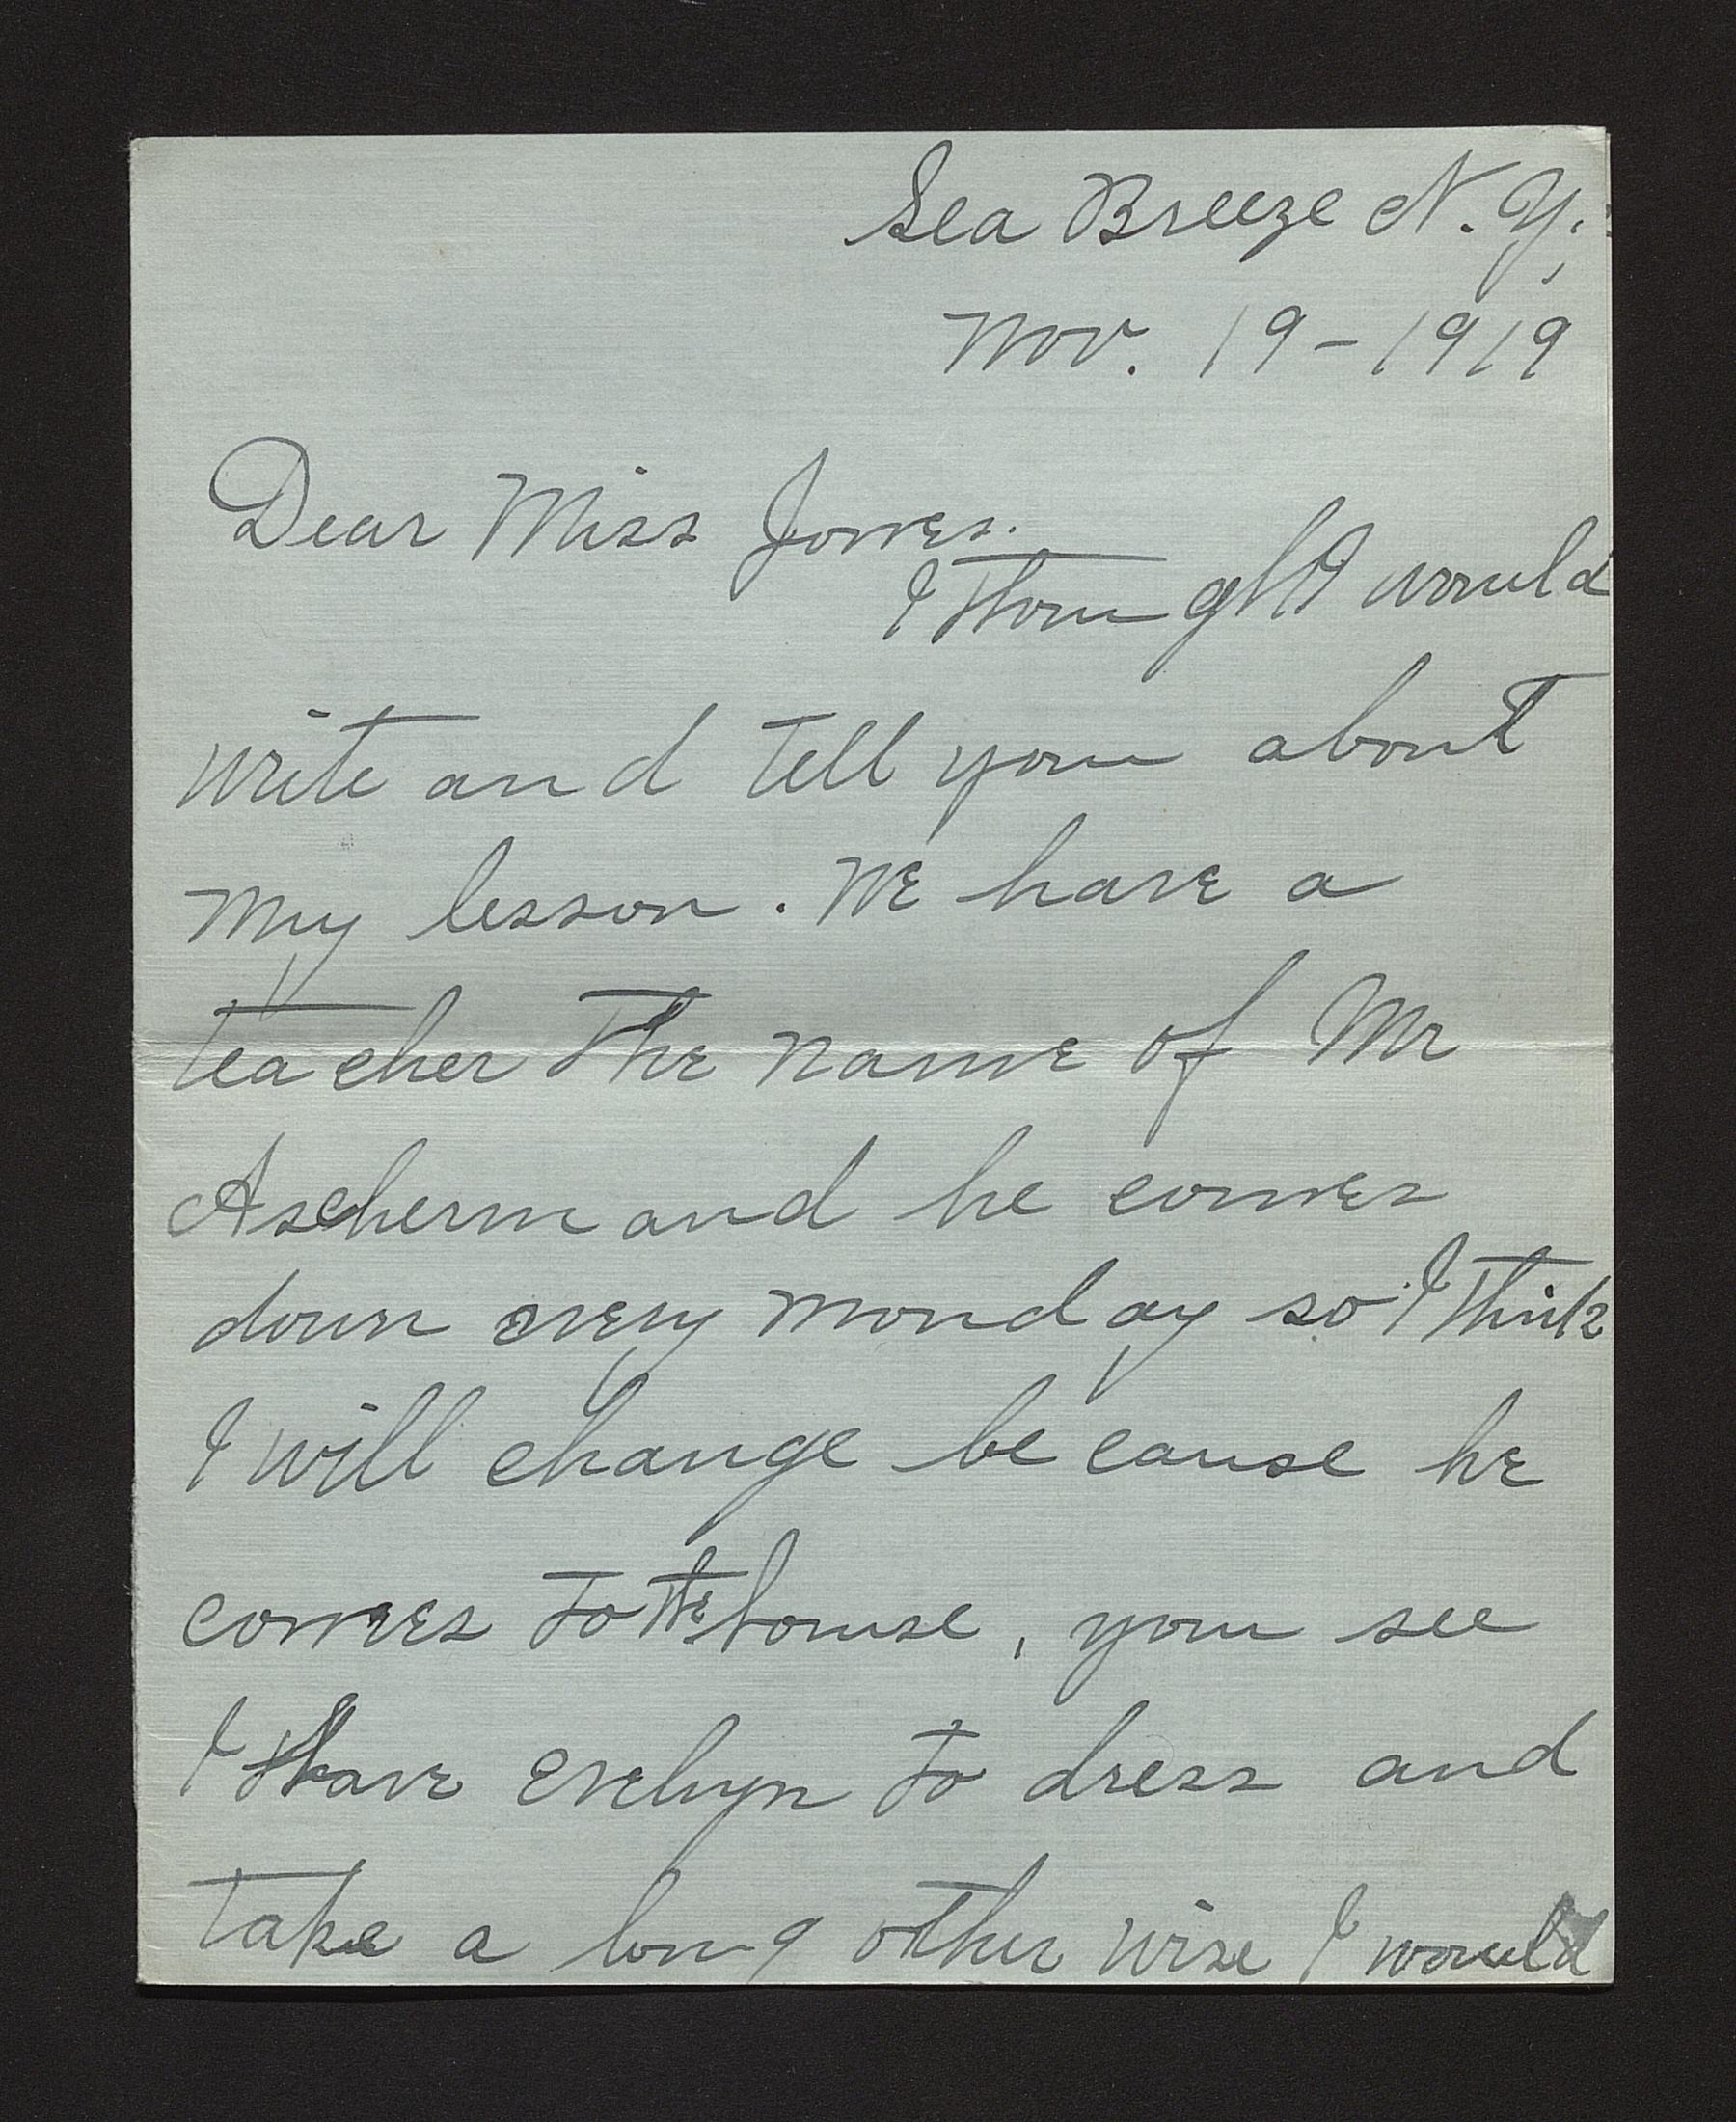 Sea Breeze N. Y.,
Nov. 19-1919
Dear Miss Jones.
I thought I would
write and tell you about
my lesson. We have a
teacher the name of Mr
Ascherm and he comes
down every monday so I think
I will change be cause he
comes to the house, you see
I have evelyn to dress and
take a long other wise I would